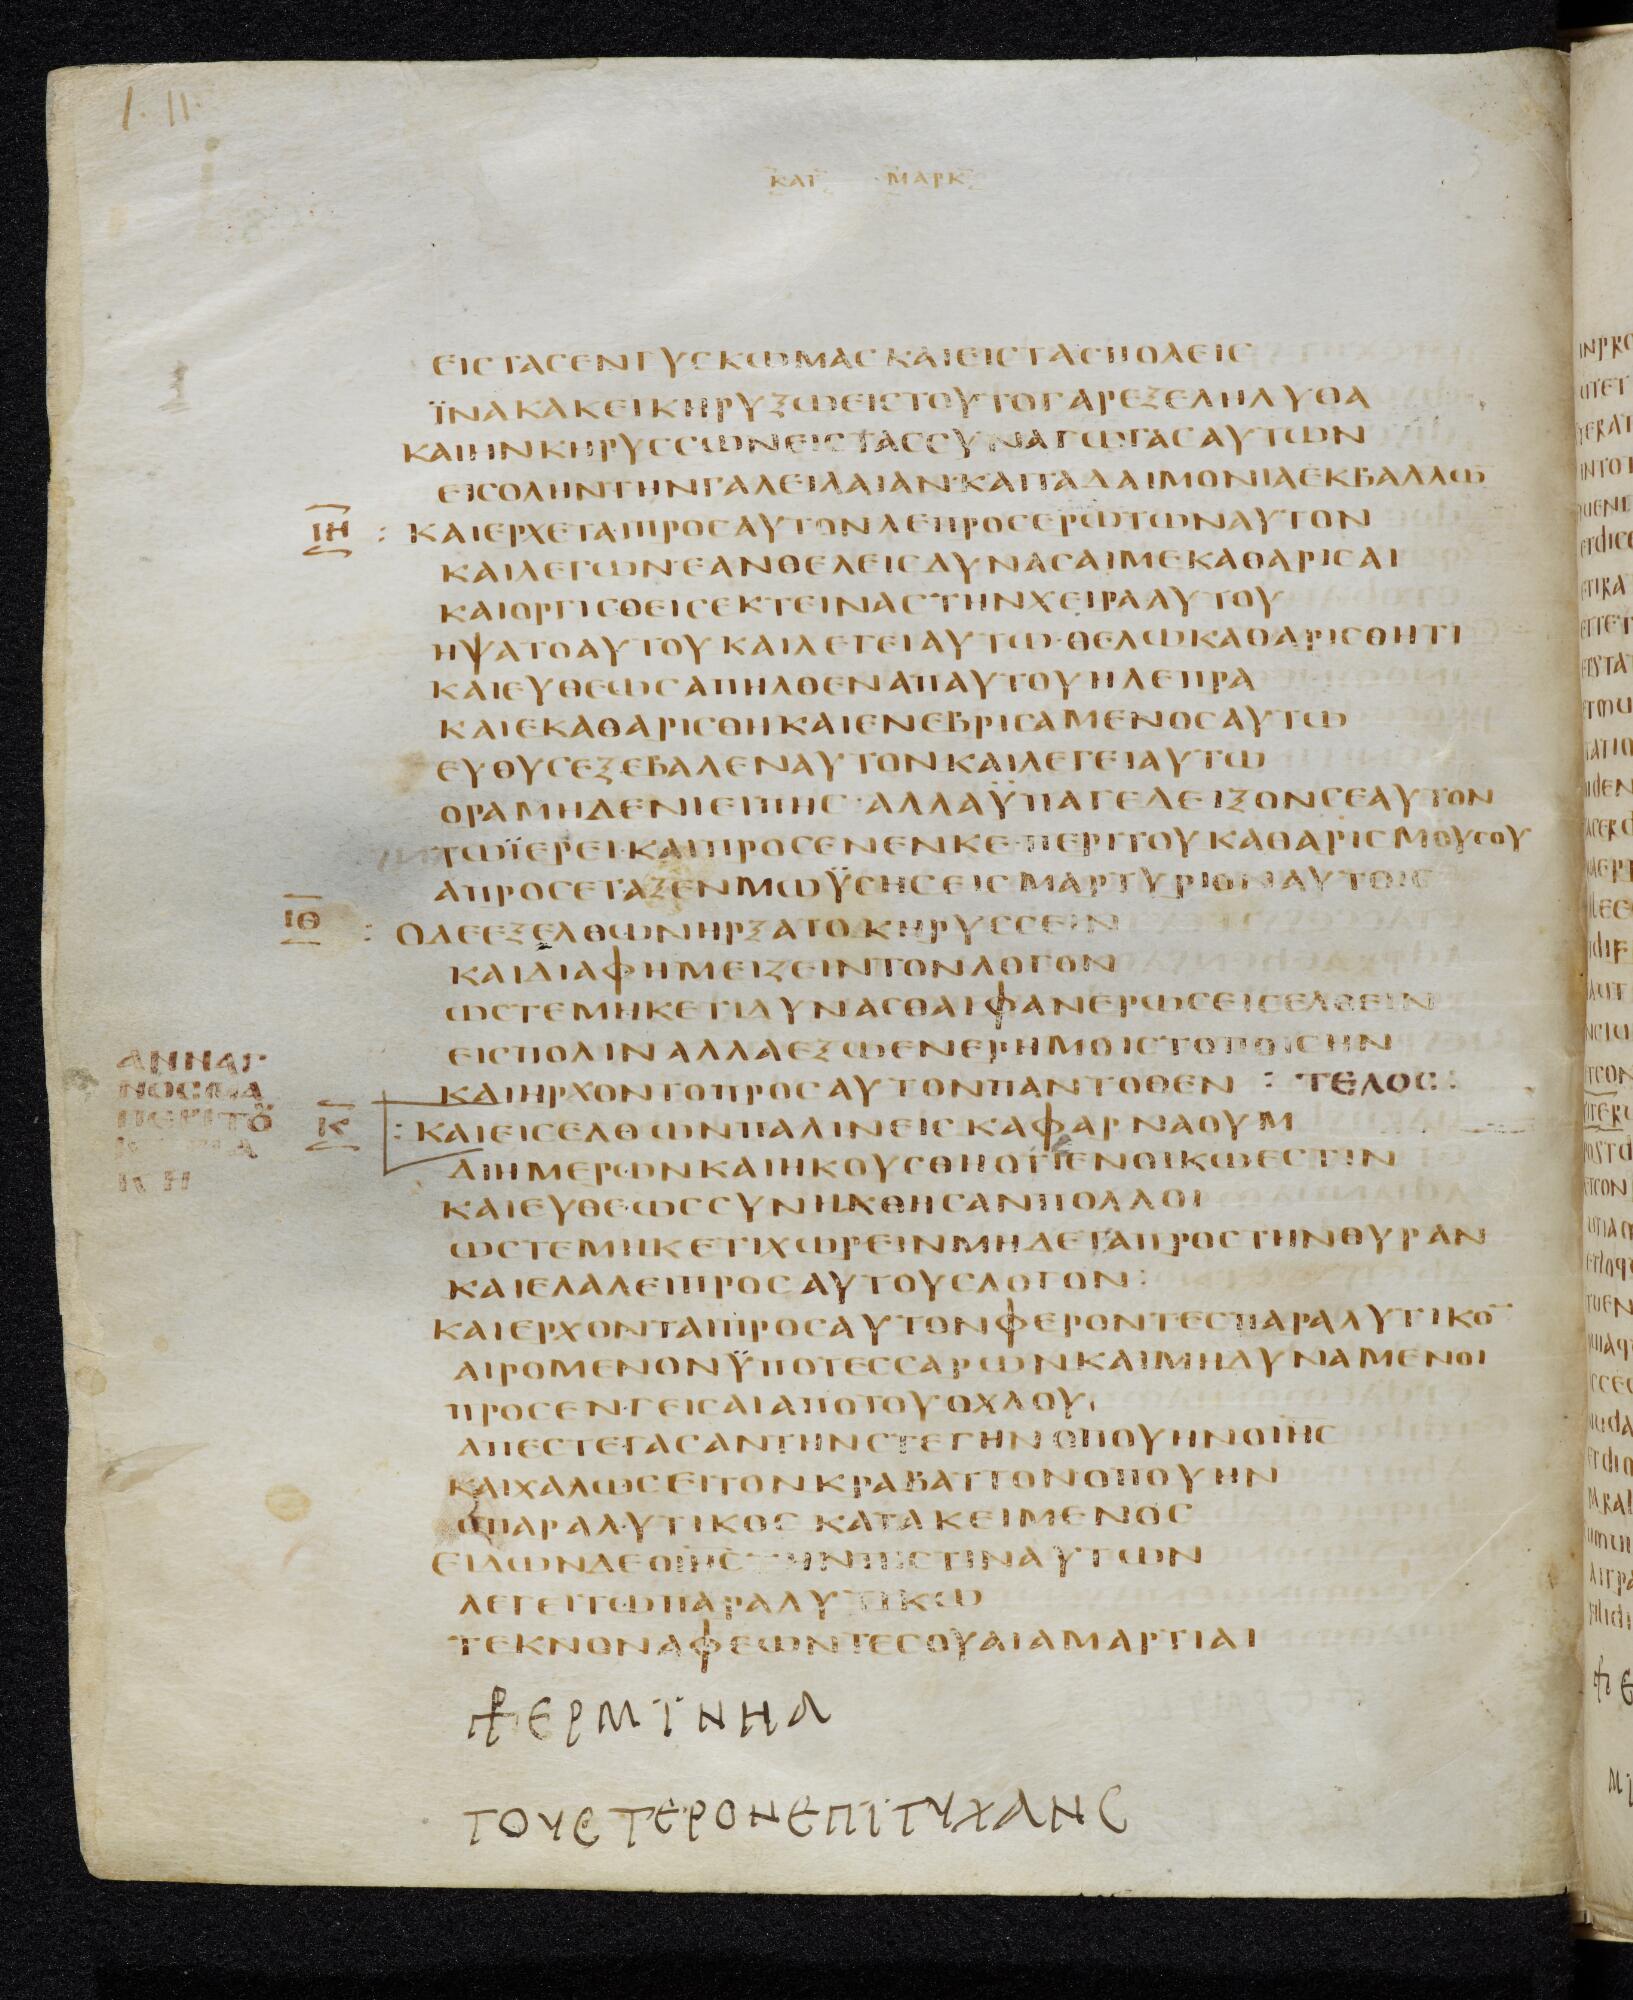 ΚΑΤ ΜΑΡΚ
ΕΙСΤΑСΕΝΓΥСΚΩΜΑСΚΑΙΕΙСΤΑСΠΟΛΕΙС
ΪΝΑΚΑΚΕΙΚΗΡΥΞΩΕΙСΤΟΥΤΟΓΑΡΕΞΕΛΗΛΥΘΑ
ΚΑΙΗΝΚΗΡΥССΩΝΕΙСΤΑССΥΝΑΓΩΓΑСΑΥΤΩΝ
ΕΙСΟΛΗΝΤΗΝΓΑΛΕΙΛΑΙΑΝ·ΚΑΙΤΑΔΑΙΜΟΝΙΑΕΚΒΑΛΛΩ̅
ΙΗ : ΚΑΙΕΡΧΕΤΑΙΠΡΟСΑΥΤΟΝΛΕΠΡΟСΕΡΩΤΩΝΑΥΤΟΝ
ΚΑΙΛΕΓΩΝ·ΕΑΝΘΕΛΕΙСΔΥΝΑСΑΙΜΕΚΑΘΑΡΙСΑΙ
ΚΑΙΟΡΓΙСΘΕΙСΕΚΤΕΙΝΑСΤΗΝΧΕΙΡΑΑΥΤΟΥ
ΗΨΑΤΟΑΥΤΟΥΚΑΙΛΕΓΕΙΑΥΤΩ·ΘΕΛΩΚΑΘΑΡΙСΘΗΤΙ
ΚΑΙΕΥΘΕΩСΑΠΗΛΘΕΝΑΠΑΥΤΟΥΗΛΕΠΡΑ
ΚΑΙΕΚΑΘΑΡΙСΘΗΚΑΙΕΝΕΒΡΙСΑΜΕΝΟСΑΥΤΩ
ΕΥΘΥСΕΞΕΒΑΛΕΝΑΥΤΟΝΚΑΙΛΕΓΕΙΑΥΤΩ
ΟΡΑΜΗΔΕΝΙΕΙΠΗС·ΑΛΛΑΫΠΑΓΕΔΕΙΞΟΝСΕΑΥΤΟΝ
ΤΩΪΕΡΕΙ·ΚΑΙΠΡΟСΕΝΕΝΚΕ·ΠΕΡΙΤΟΥΚΑΘΑΡΙСΜΟΥСΟΥ
ΑΠΡΟСΕΤΑΞΕΝΜΩΫСΗСΕΙСΜΑΡΤΥΡΙΟΝΑΥΤΟΙС
ΙΘ : ΟΔΕΕΞΕΛΘΩΝΗΡΞΑΤΟΚΗΡΥССΕΙΝ
ΚΑΙΔΙΑΦΗΜΕΙΖΕΙΝΤΟΝΛΟΓΟΝ
ΩСΤΕΜΗΚΕΤΙΔΥΝΑСΘΑΙΦΑΝΕΡΩСΕΙСΕΛΘΕΙΝ
ΕΙСΠΟΛΙΝΑΛΛΑΕΞΩΕΝΕΡΗΜΟΙСΤΟΠΟΙСΗΝ
ΚΑΙΗΡΧΟΝΤΟΠΡΟСΑΥΤΟΝΠΑΝΤΟΘΕΝ : ΤΕΛΟС :
ΑΝΝΑΓ
ΝΟСΜΑ
ΠΕΡΙΤΟ
ΚΗ
Κ : ΚΑΙΕΙСΕΛΘΩΝΠΑΛΙΝΕΙСΚΑΦΑΡΝΑΟΥΜ
ΔΙΗΜΕΡΩΝΚΑΙΗΚΟΥСΘΗΟΤΙΕΝΟΙΚΩΕСΤΙΝ
ΚΑΙΕΥΘΕΩССΥΝΗΧΘΗСΑΝΠΟΛΛΟΙ
ΩСΤΕΜΗΚΕΤΙΧΩΡΕΙΝΜΗΔΕΤΑΠΡΟСΤΗΝΘΥΡΑΝ
ΚΑΙΕΛΑΛΕΙΠΡΟСΑΥΤΟΥСΛΟΓΟΝ :
ΚΑΙΕΡΧΟΝΤΑΙΠΡΟСΑΥΤΟΝΦΕΡΟΝΤΕСΠΑΡΑΛΥΤΙΚΟ̅
ΑΙΡΟΜΕΝΟΝΫΠΟΤΕССΑΡΩΝΚΑΙΜΗΔΥΝΑΜΕΝΟΙ
ΠΡΟСΕΝΓΕΙСΑΙΑΠΟΤΟΥΟΧΛΟΥ
ΑΠΕСΤΕΓΑСΑΝΤΗΝСΤΕΓΗΝΟΠΟΥΗΝΟΙΗС
ΚΑΙΧΑΛΩСΕΙΤΟΝΚΡΑΒΑΤΤΟΝΟΠΟΥΗΝ
ΟΠΑΡΑΛΥΤΙΚΟСΚΑΤΑΚΕΙΜΕΝΟС
ΕΙΔΩΝΔΕΟΙΗСΤΗΝΠΙСΤΙΝΑΥΤΩΝ
ΛΕΓΕΙΤΩΠΑΡΑΛΥΤΙΚΩ
ΤΕΚΝΟΝΑΦΕΩΝΤΕСΟΥΑΙΑΜΑΡΤΙΑΙ
⳨ΕΡΜΪΝΗΑ
ΤΟΥСΤΕΡΟΝΕΠΪΤΥΧΑΝС